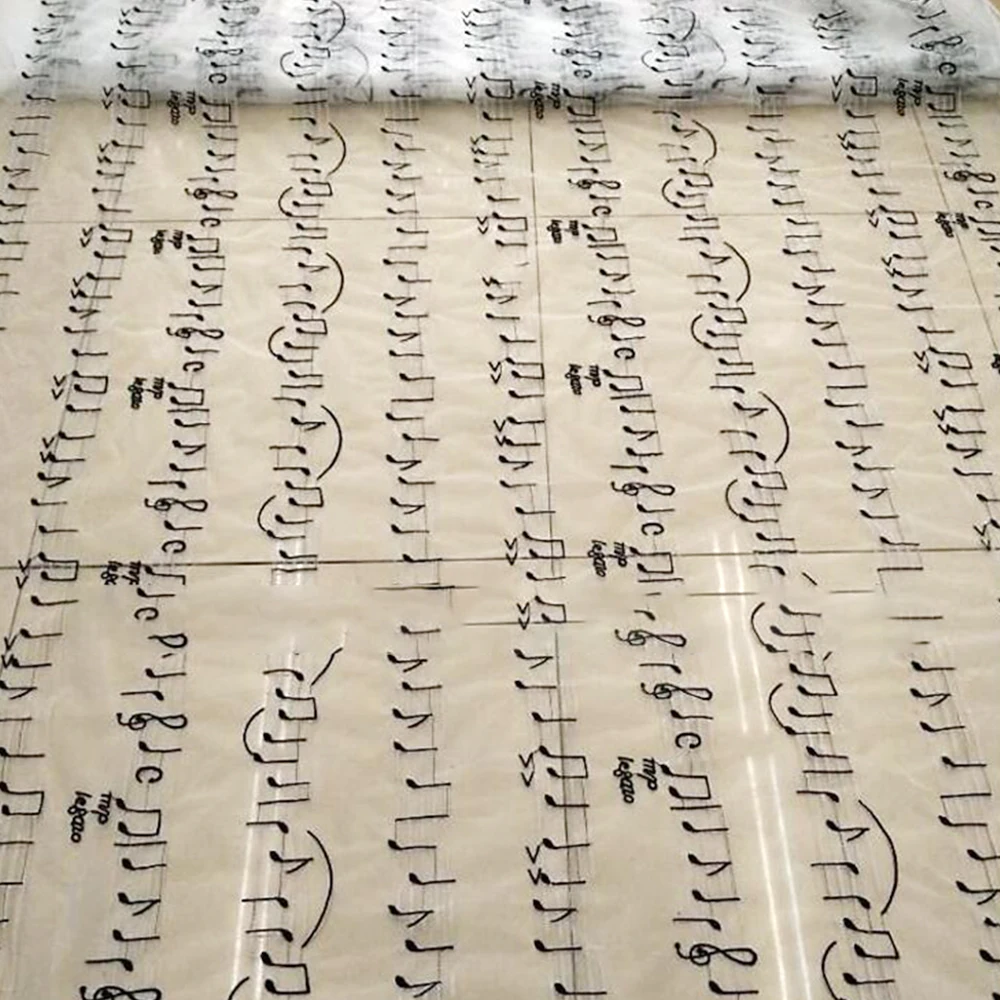 mp
legato
mp
legato
mp
legato
mp
legato
mp
legato
mp
legato
mp
legato
mp
legato
mp
legato
mp
legato
mp
legato